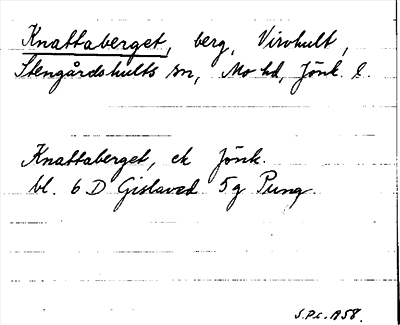 Knattaberget, berg, Virvhult,
Stengårdshults sn, Mo hd, Jönk. l.
Knattaberget, ek Jönk.
bl. 6 D Gislaved 5g Pung.
S.P.c. 1958.